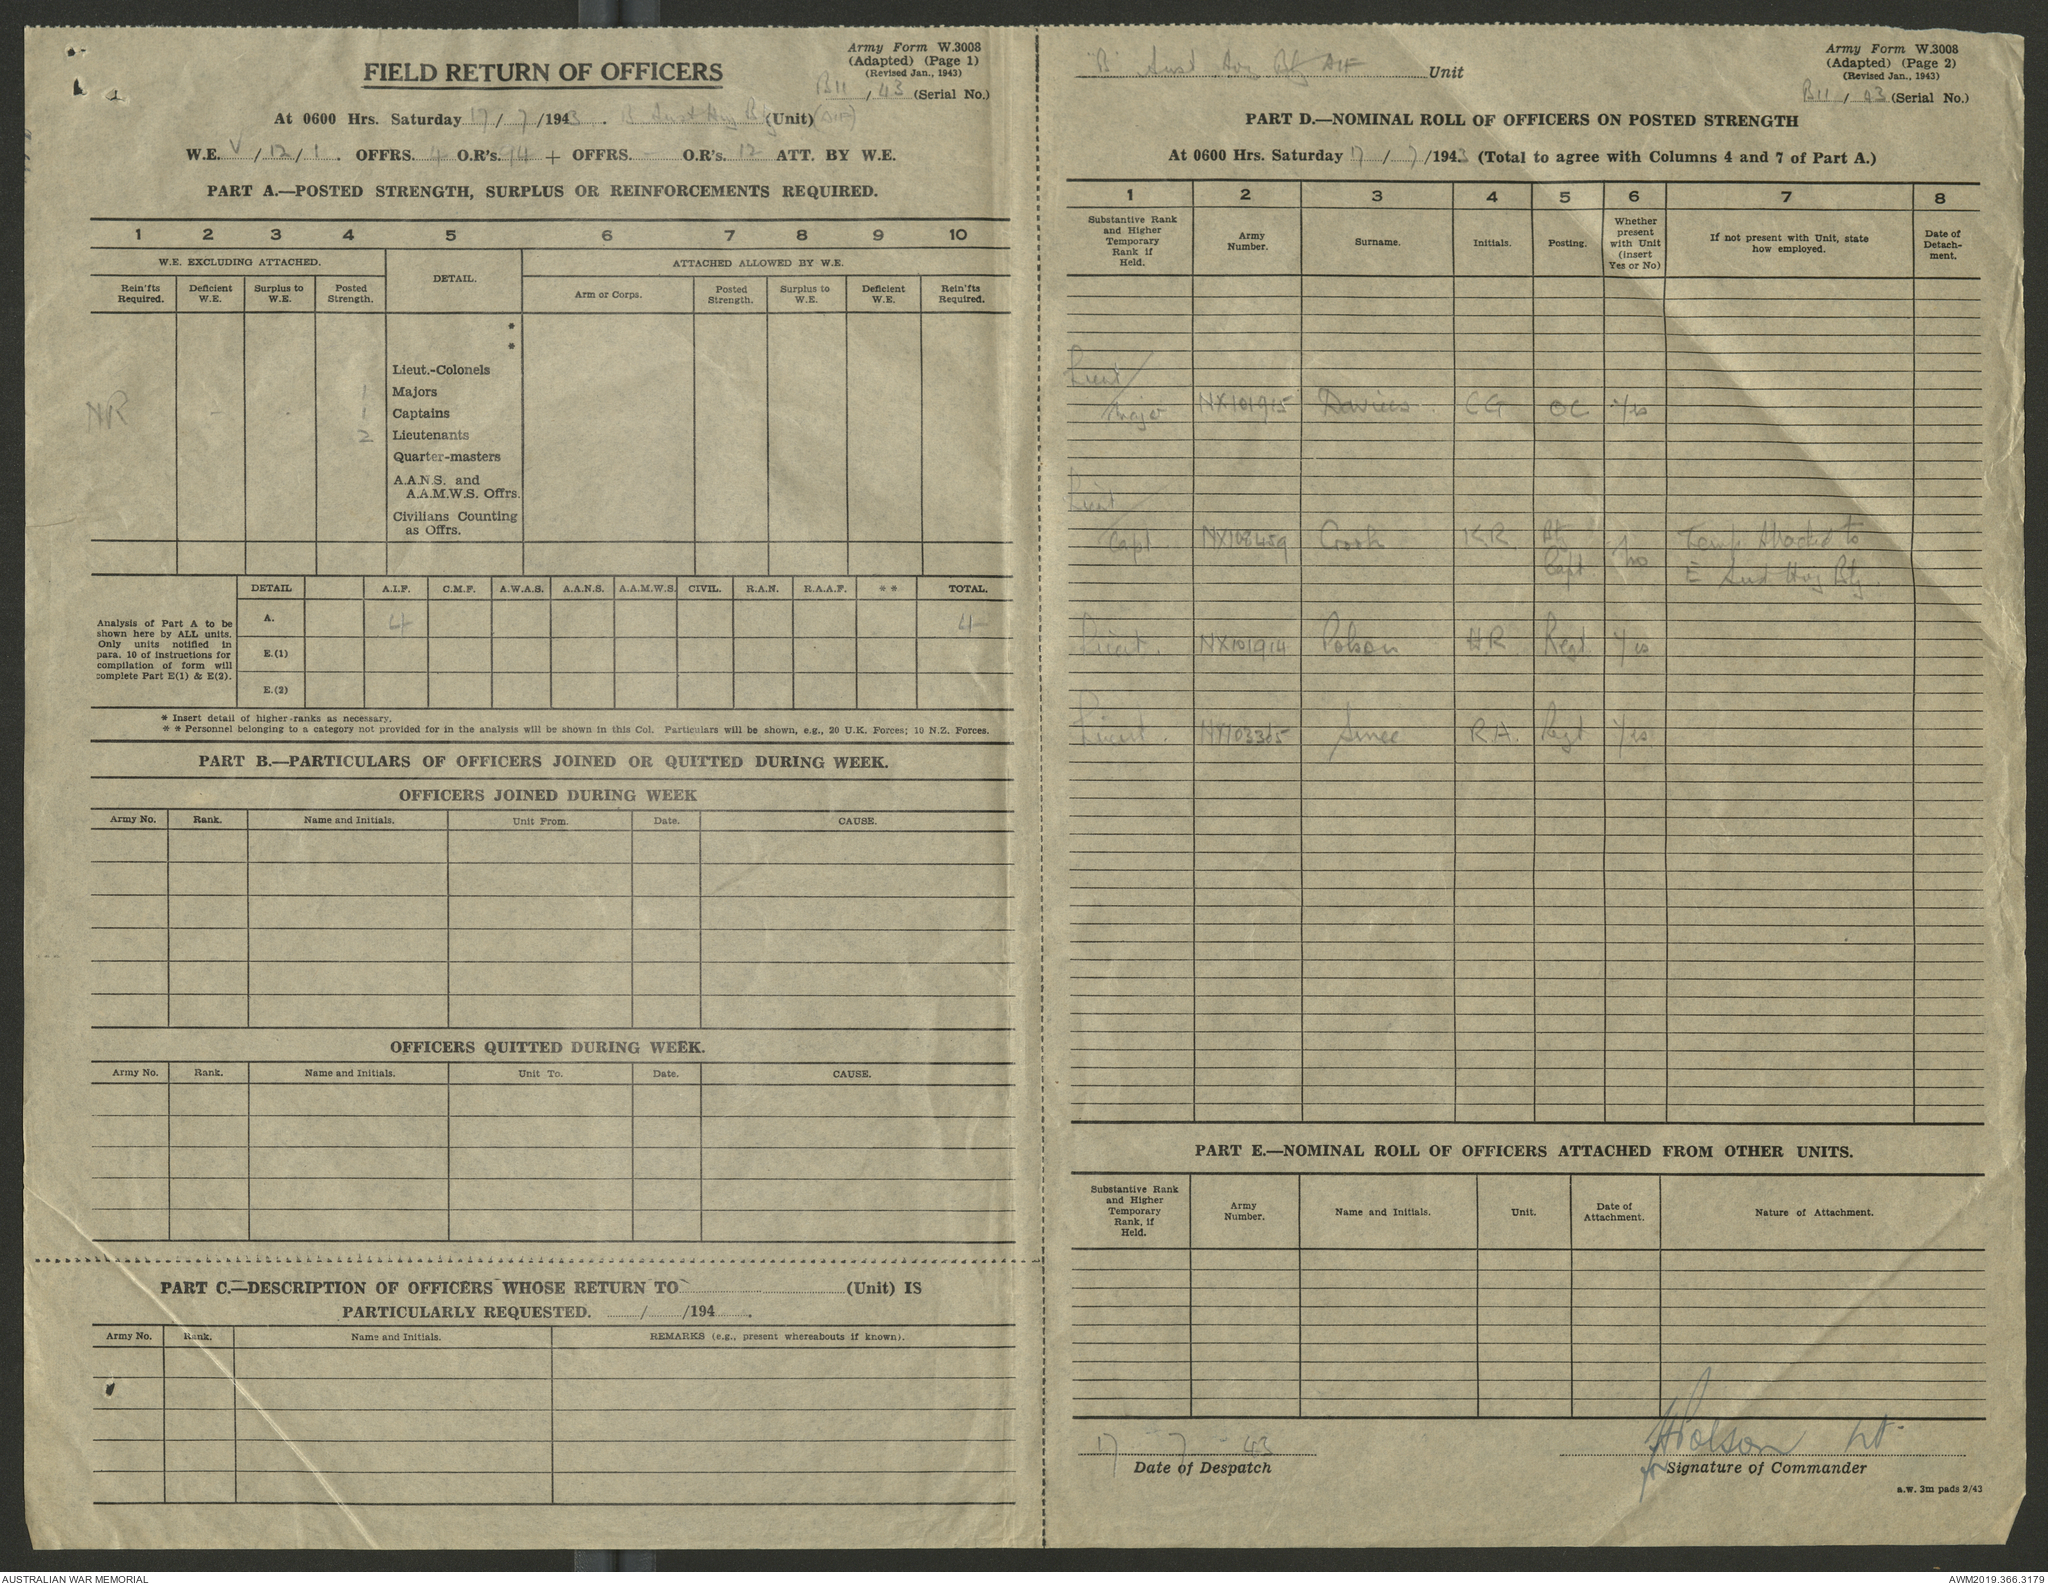 Army Form W.3008
(Adapted) (Page 1)
(Revised Jan., 1943)
FIELD RETURN OF OFFICERS
B11 / 43 (Serial No.)
At 0600 Hrs. Saturday 17 / 7 /1943 . B Aust Hvy Bty (Unit) (AIF)
W.E. V / 12 / 1 . OFFRS. 4 O.R's. 94 + OFFRS. - O.R's. 12 ATT. BY W.E.
PART A.—POSTED STRENGTH, SURPLUS OR REINFORCEMENTS REQUIRED.
1 2 3 4 5 6 7 8 9 10
W.E. EXCLUDING ATTACHED. DETAIL. ATTACHED ALLOWED BY W.E.
Rein'fts Required. Deficient W.E. Surplus to W.E. Posted Strength. Arm or Corps. Posted Strength. Surplus to W.E. Deficient W.E. Rein'fts Required.
*
*
Lieut.-Colonels
1 Majors
NR - . 1 Captains
2 Lieutenants
Quarter-masters
A.A.N.S. and
A.A.M.W.S. Offrs.
Civilians Counting
as Offrs.
DETAIL A.I.F. C.M.F. A.W.A.S. A.A.N.S. A.A.M.W.S. CIVIL. R.A.N. R.A.A.F. * * TOTAL.
Analysis of Part A to be
shown here by ALL units.
Only units notified in
para. 10 of instructions for
compilation of form will
complete Part E(1) & E(2).
A. 4 4
E.(1)
E.(2)
* Insert detail of higher ranks as necessary.
* * Personnel belonging to a category not provided for in the analysis will be shown in this Col. Particulars will be shown, e.g., 20 U.K. Forces; 10 N.Z. Forces.
PART B.—PARTICULARS OF OFFICERS JOINED OR QUITTED DURING WEEK.
OFFICERS JOINED DURING WEEK
Army No. Rank. Name and Initials. Unit From. Date. CAUSE.
OFFICERS QUITTED DURING WEEK.
Army No. Rank. Name and Initials. Unit To. Date. CAUSE.
PART C.—DESCRIPTION OF OFFICERS WHOSE RETURN TO (Unit) IS
PARTICULARLY REQUESTED. / /194 .
Army No. Rank. Name and Initials. REMARKS (e.g., present whereabouts if known).
Army Form W.3008
(Adapted) (Page 2)
(Revised Jan., 1943)
"B" Aust Hvy Bty AIF Unit
B11 / 43 (Serial No.)
PART D.—NOMINAL ROLL OF OFFICERS ON POSTED STRENGTH
At 0600 Hrs. Saturday 17 / 7 /1943 (Total to agree with Columns 4 and 7 of Part A.)
1 2 3 4 5 6 7 8
Substantive Rank and Higher Temporary Rank if Held. Army Number. Surname. Initials. Posting. Whether present with Unit (insert Yes or No) If not present with Unit, state how employed. Date of Detach-ment.
Lieut/
Major NX101915 Davies CG OC Yes
Lieut
Capt NX108459 Crook KR Bty Capt No Temp Attached to
E Aust Hvy Bty.
Lieut. NX101914 Polson HR Regt Yes
Lieut. NX103365 Smee RA. Regt Yes
PART E.—NOMINAL ROLL OF OFFICERS ATTACHED FROM OTHER UNITS.
Substantive Rank and Higher Temporary Rank, if Held. Army Number. Name and Initials. Unit. Date of Attachment. Nature of Attachment.
17 - 7 - 43
Date of Despatch
HPolson Lt
for Signature of Commander
a.w. 3m pads 2/43
AUSTRALIAN WAR MEMORIAL
AWM2019.366.3179